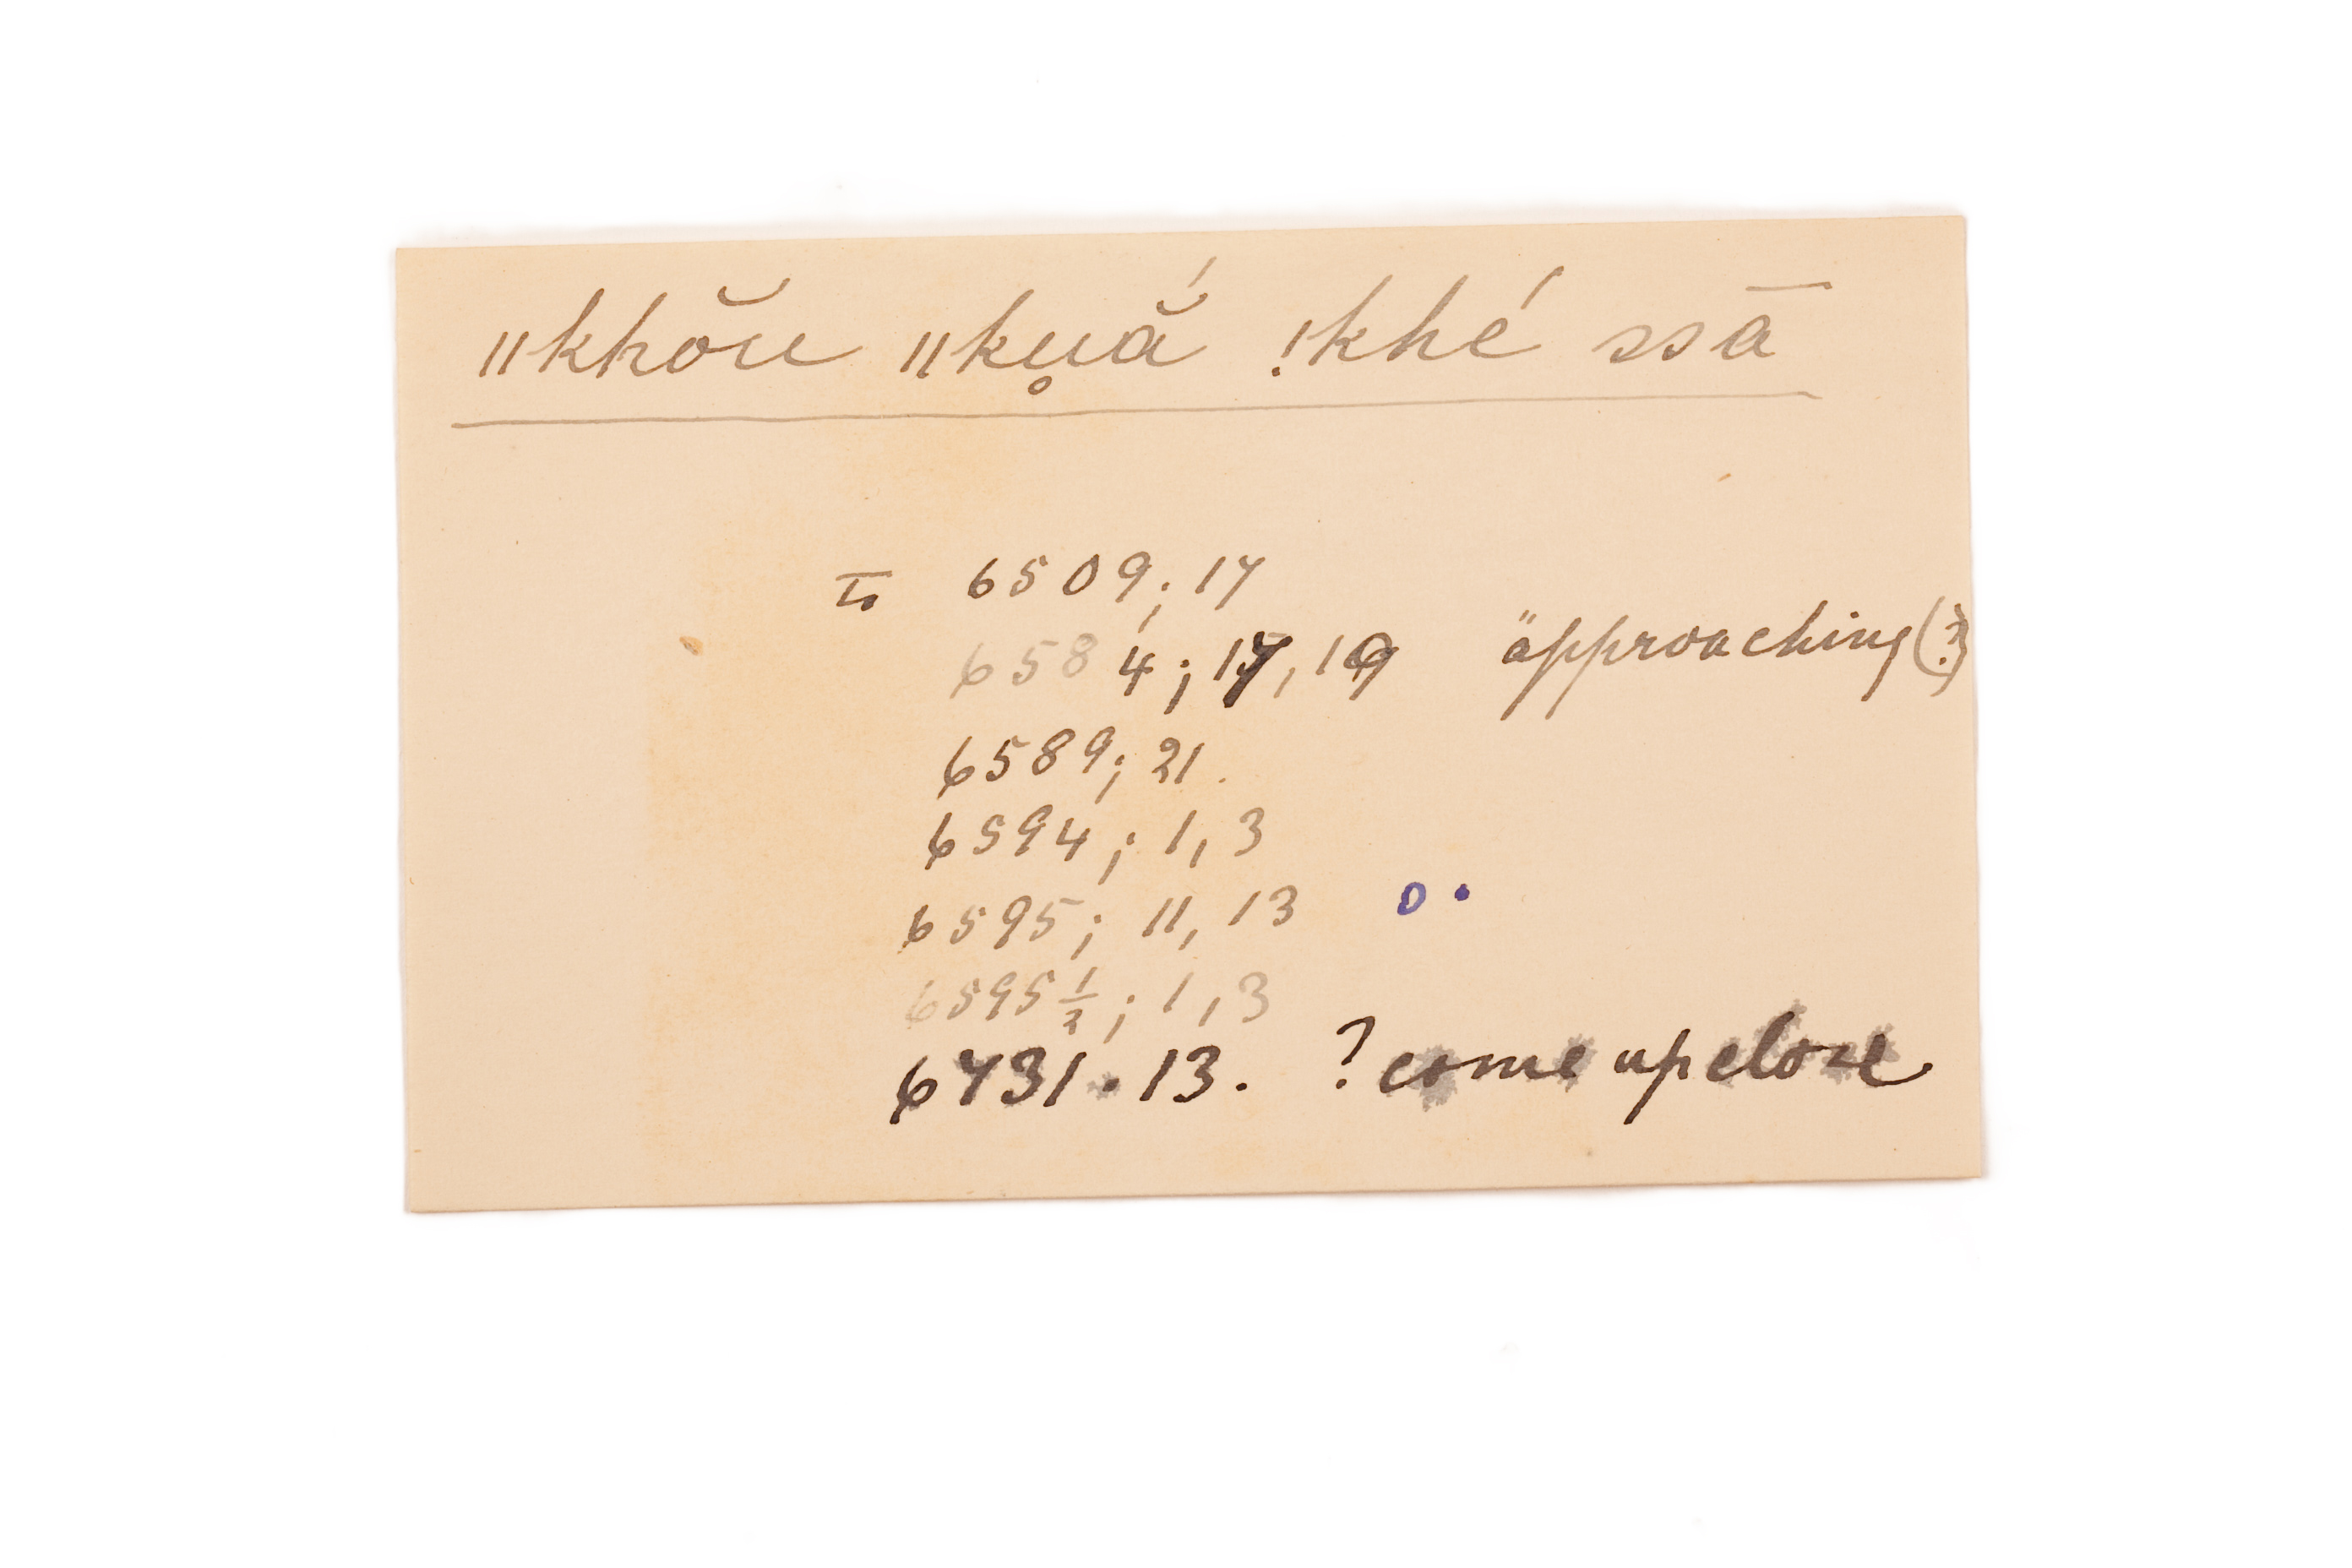 ǁkhŏu ǁku̥ắ !khé ssā
6509; 17
6584; 17, 19 äpproaching (?)
6589; 21.
6594; 1, 3
6595; 11, 13 o.
6595 1/2; 1, 3
6731. 13. ? come up close